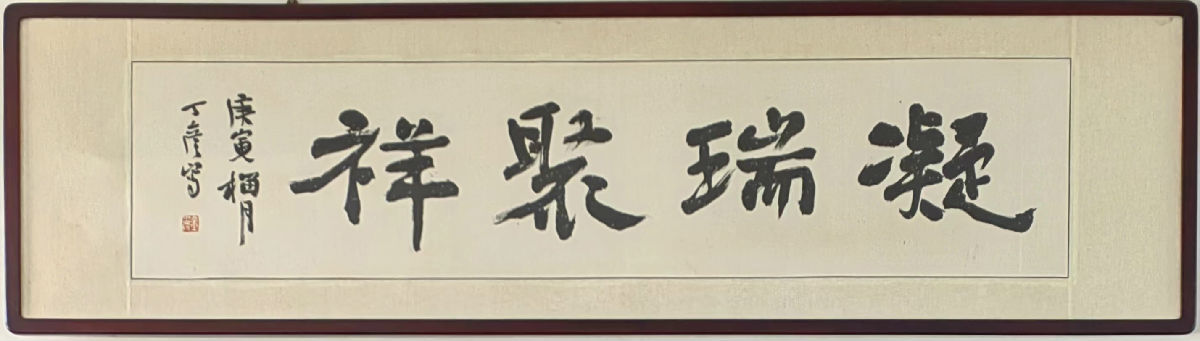 凝瑞聚祥
庚寅榴月
丁彦写